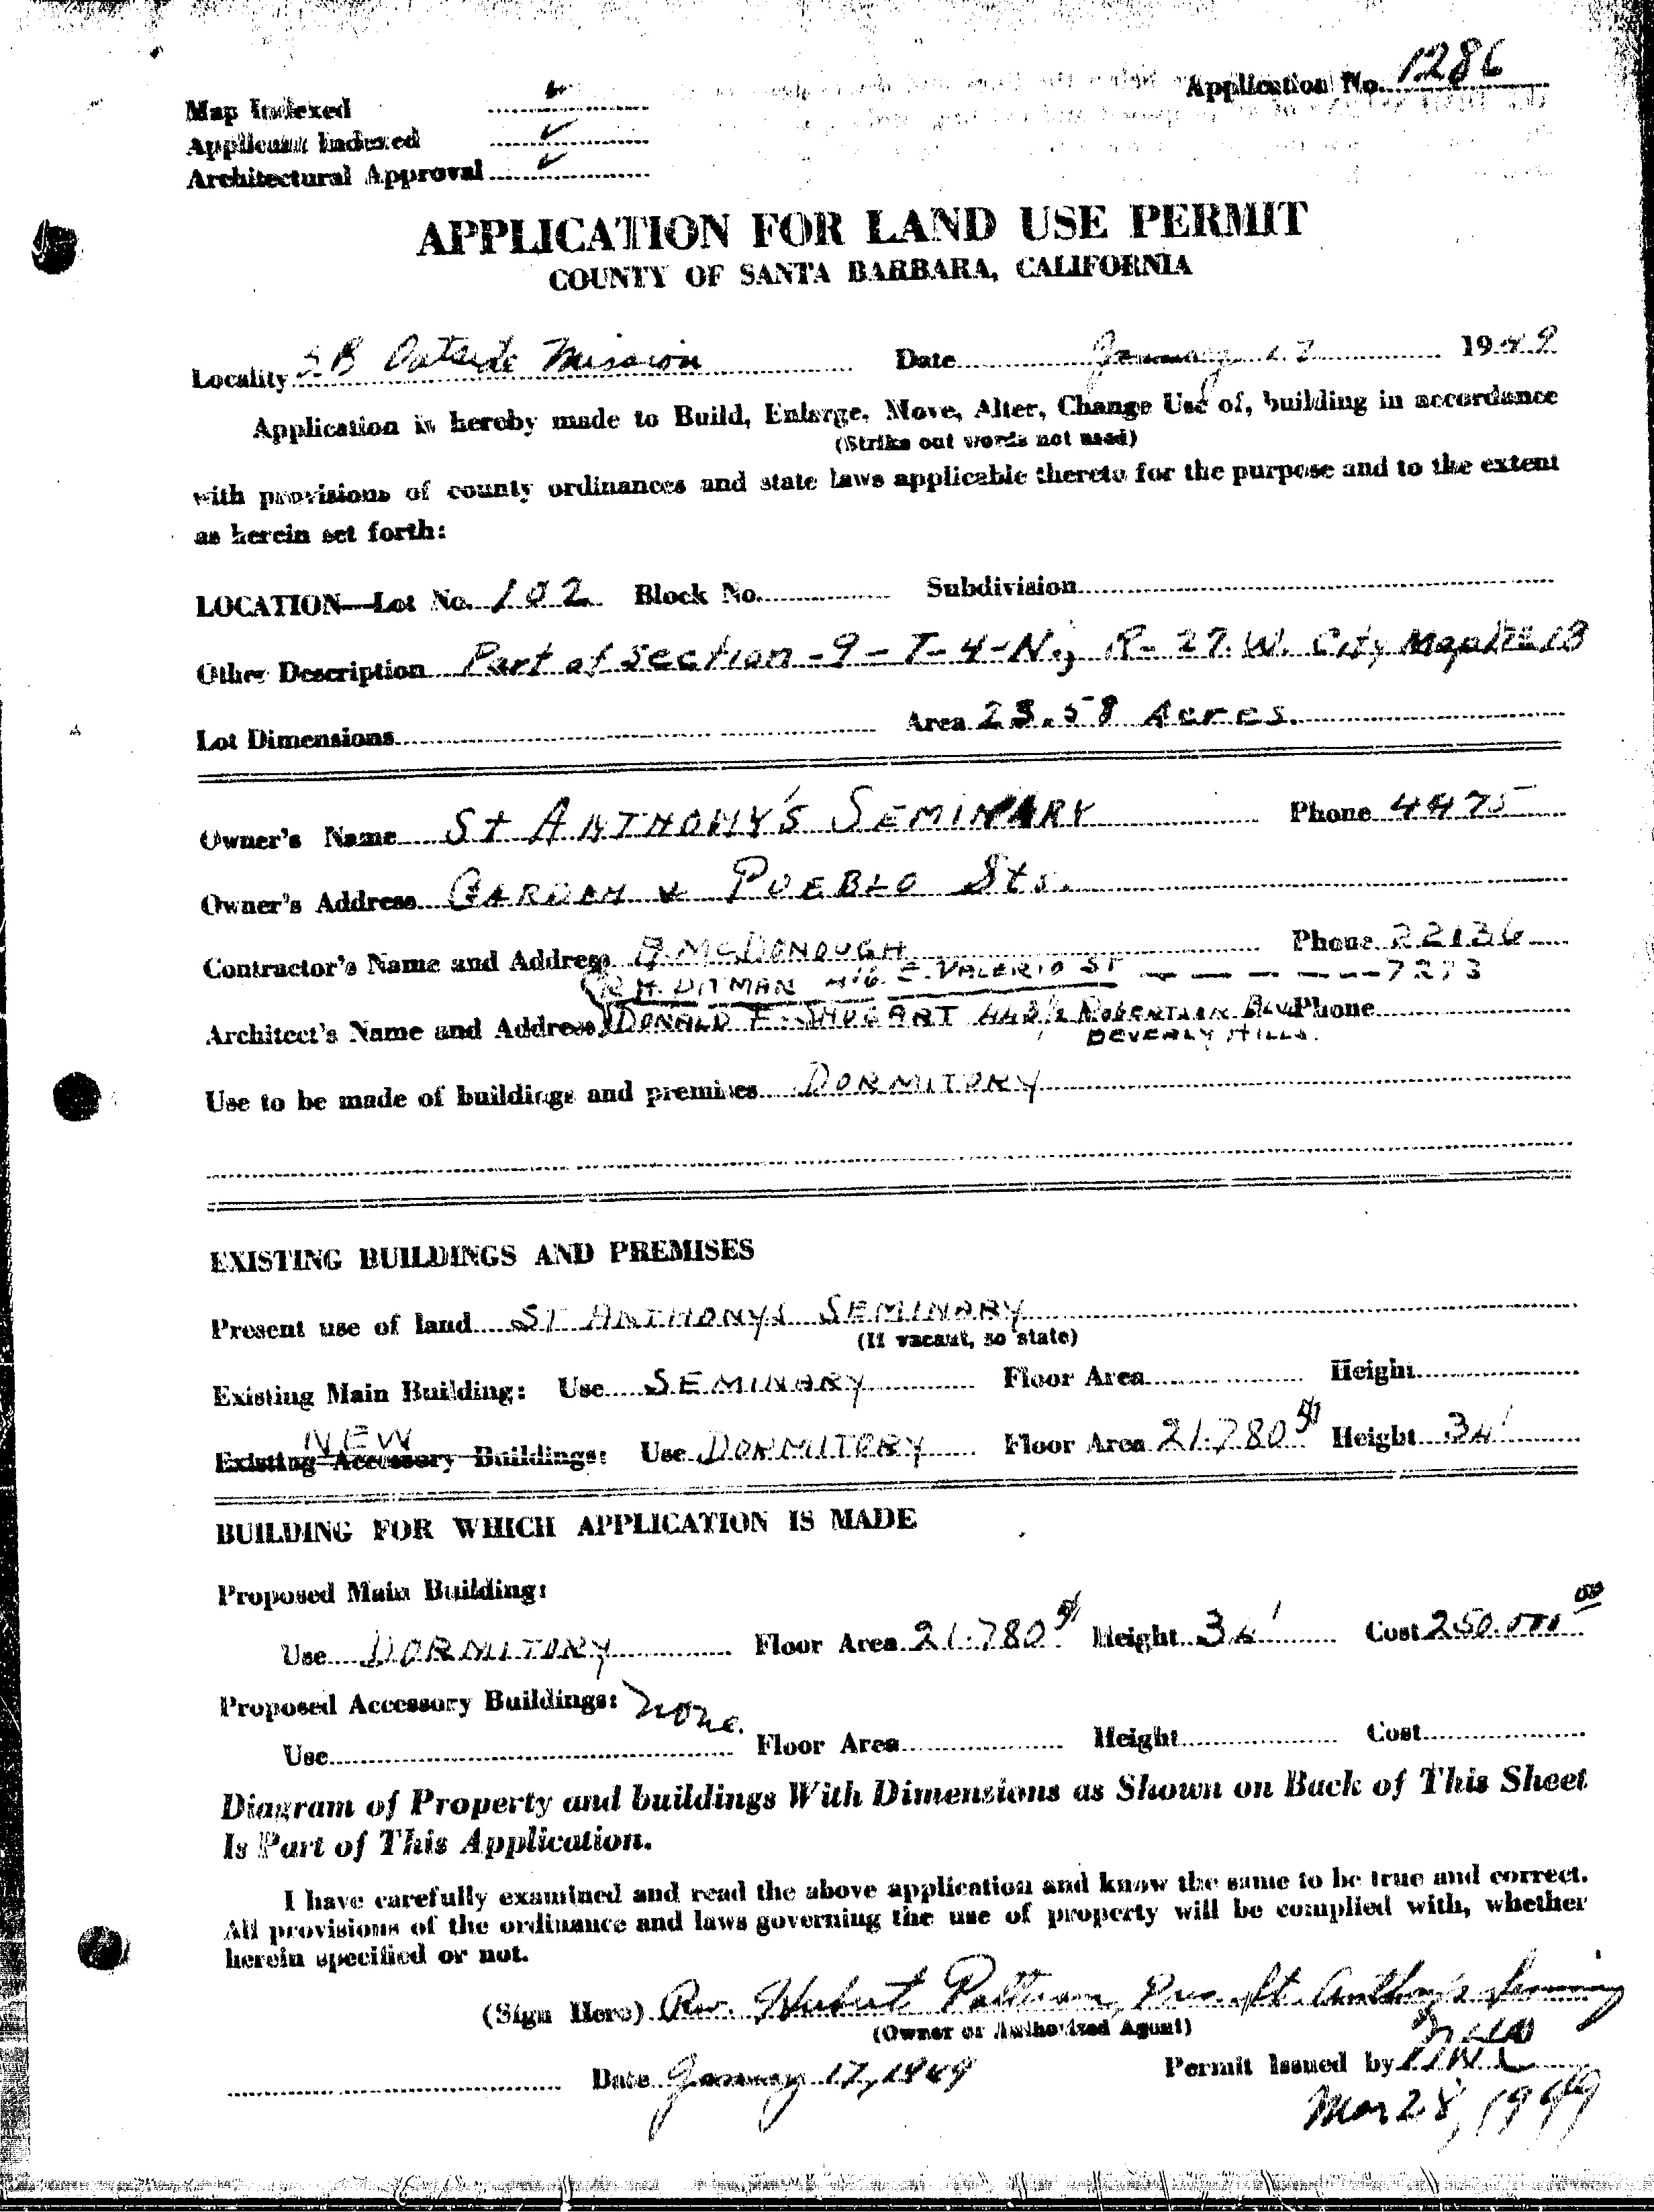 Application No. 1286
Map Indexed
Applicant Indexed ✓
Architectural Approval ✓
APPLICATION FOR LAND USE PERMIT
COUNTY OF SANTA BARBARA, CALIFORNIA
Locality SB Outside Mission Date January 17 1949
Application is hereby made to Build, Enlarge, Move, Alter, Change Use of, building in accordance
(Strike out words not used)
with provisions of county ordinances and state laws applicable thereto for the purpose and to the extent
as herein set forth:
LOCATION—Lot No. 102 Block No. Subdivision
Other Description Part of Section - 9 - T - 4 - N.; R - 27. W. City Map
Lot Dimensions Area 23.58 Acres.
Owner's Name St ANTHONY'S SEMINARY Phone 4475
Owner's Address GARDEN & PUEBLO Sts.
Contractor's Name and Address McDONOUGH Phone 22136
R. H. PITMAN 416 E. VALERIO ST — — — — — 7273
Architect's Name and Address DONALD F. SHUGART ROBERTSON BLVD Phone
BEVERLY HILLS.
Use to be made of buildings and premises DORMITORY
EXISTING BUILDINGS AND PREMISES
Present use of land ST ANTHONYS SEMINARY
(If vacant, so state)
Existing Main Building: Use SEMINARY Floor Area Height
NEW
Existing Accessory Buildings: Use DORMITORY Floor Area 21.780 Height
BUILDING FOR WHICH APPLICATION IS MADE
Proposed Main Building:
Use DORMITORY Floor Area 21.780 Height Cost 250.000 00
Proposed Accessory Buildings: None.
Use Floor Area Height Cost
Diagram of Property and buildings With Dimensions as Shown on Back of This Sheet
Is Part of This Application.
I have carefully examined and read the above application and know the same to be true and correct.
All provisions of the ordinance and laws governing the use of property will be complied with, whether
herein specified or not.
(Sign Here) Rev. Herbert Patterson, Pres. St. Anthony's Seminary
(Owner or Authorized Agent)
Date January 17, 1949 Permit Issued by
Mar 28, 1949